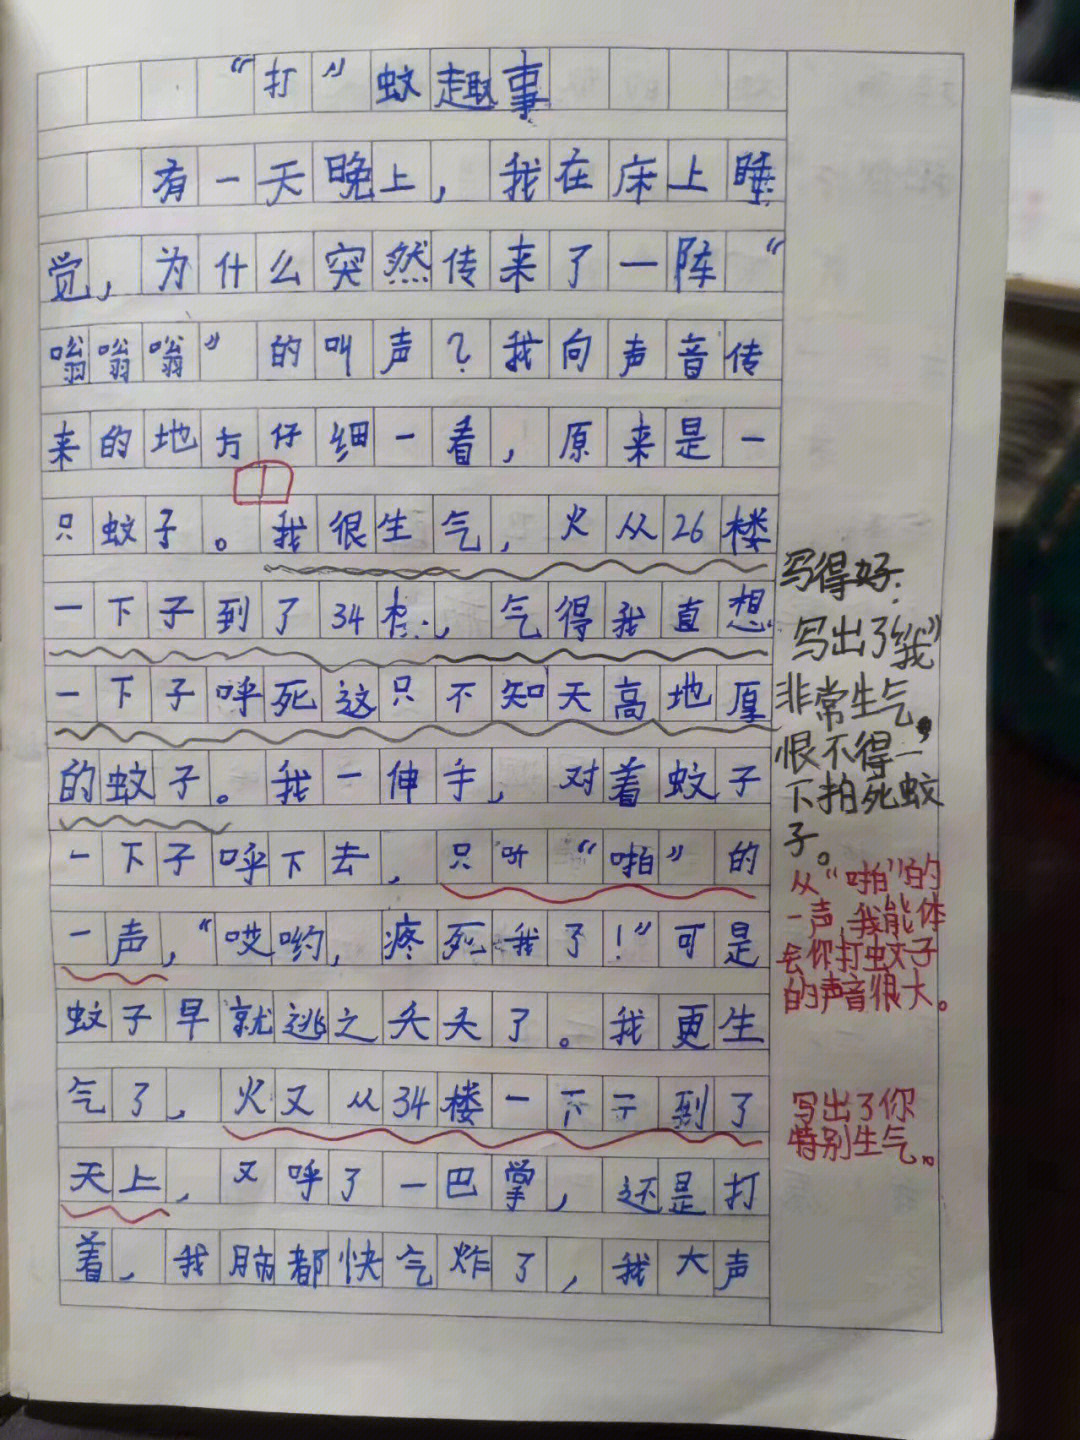 “打”蚊趣事
有一天晚上，我在床上睡
觉，为什么突然传来了一阵“
嗡嗡嗡”的叫声？我向声音传
来的地方仔细一看，原来是一
只蚊子。我很生气，火从26楼
一下子到了34楼，气得我直想
一下子呼死这只不知天高地厚
的蚊子。我一伸手，对着蚊子
一下子呼下去，只听“啪”的
一声，“哎哟，疼死我了！”可是
蚊子早就逃之夭夭了。我更生
气了，火又从34楼一下子到了
天上，又呼了一巴掌，还是打
着，我肺都快气炸了，我大声
写得好：
写出了“我”
非常生气，
恨不得一
下拍死蚊
子。
从“啪”的
一声，我能体
会你打蚊子
的声音很大。
写出了你
特别生气。